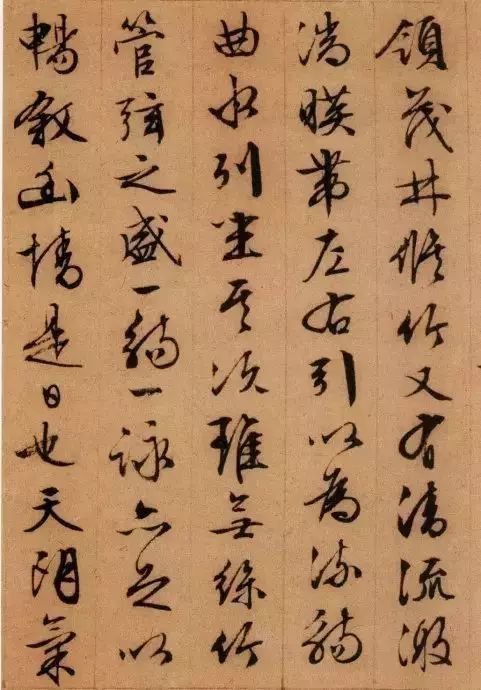 領茂林脩竹又有清流激
湍暎帶左右引以為流觴
曲水列坐其次雖無絲竹
管弦之盛一觴一詠亦足以
暢敘幽情是日也天朗氣